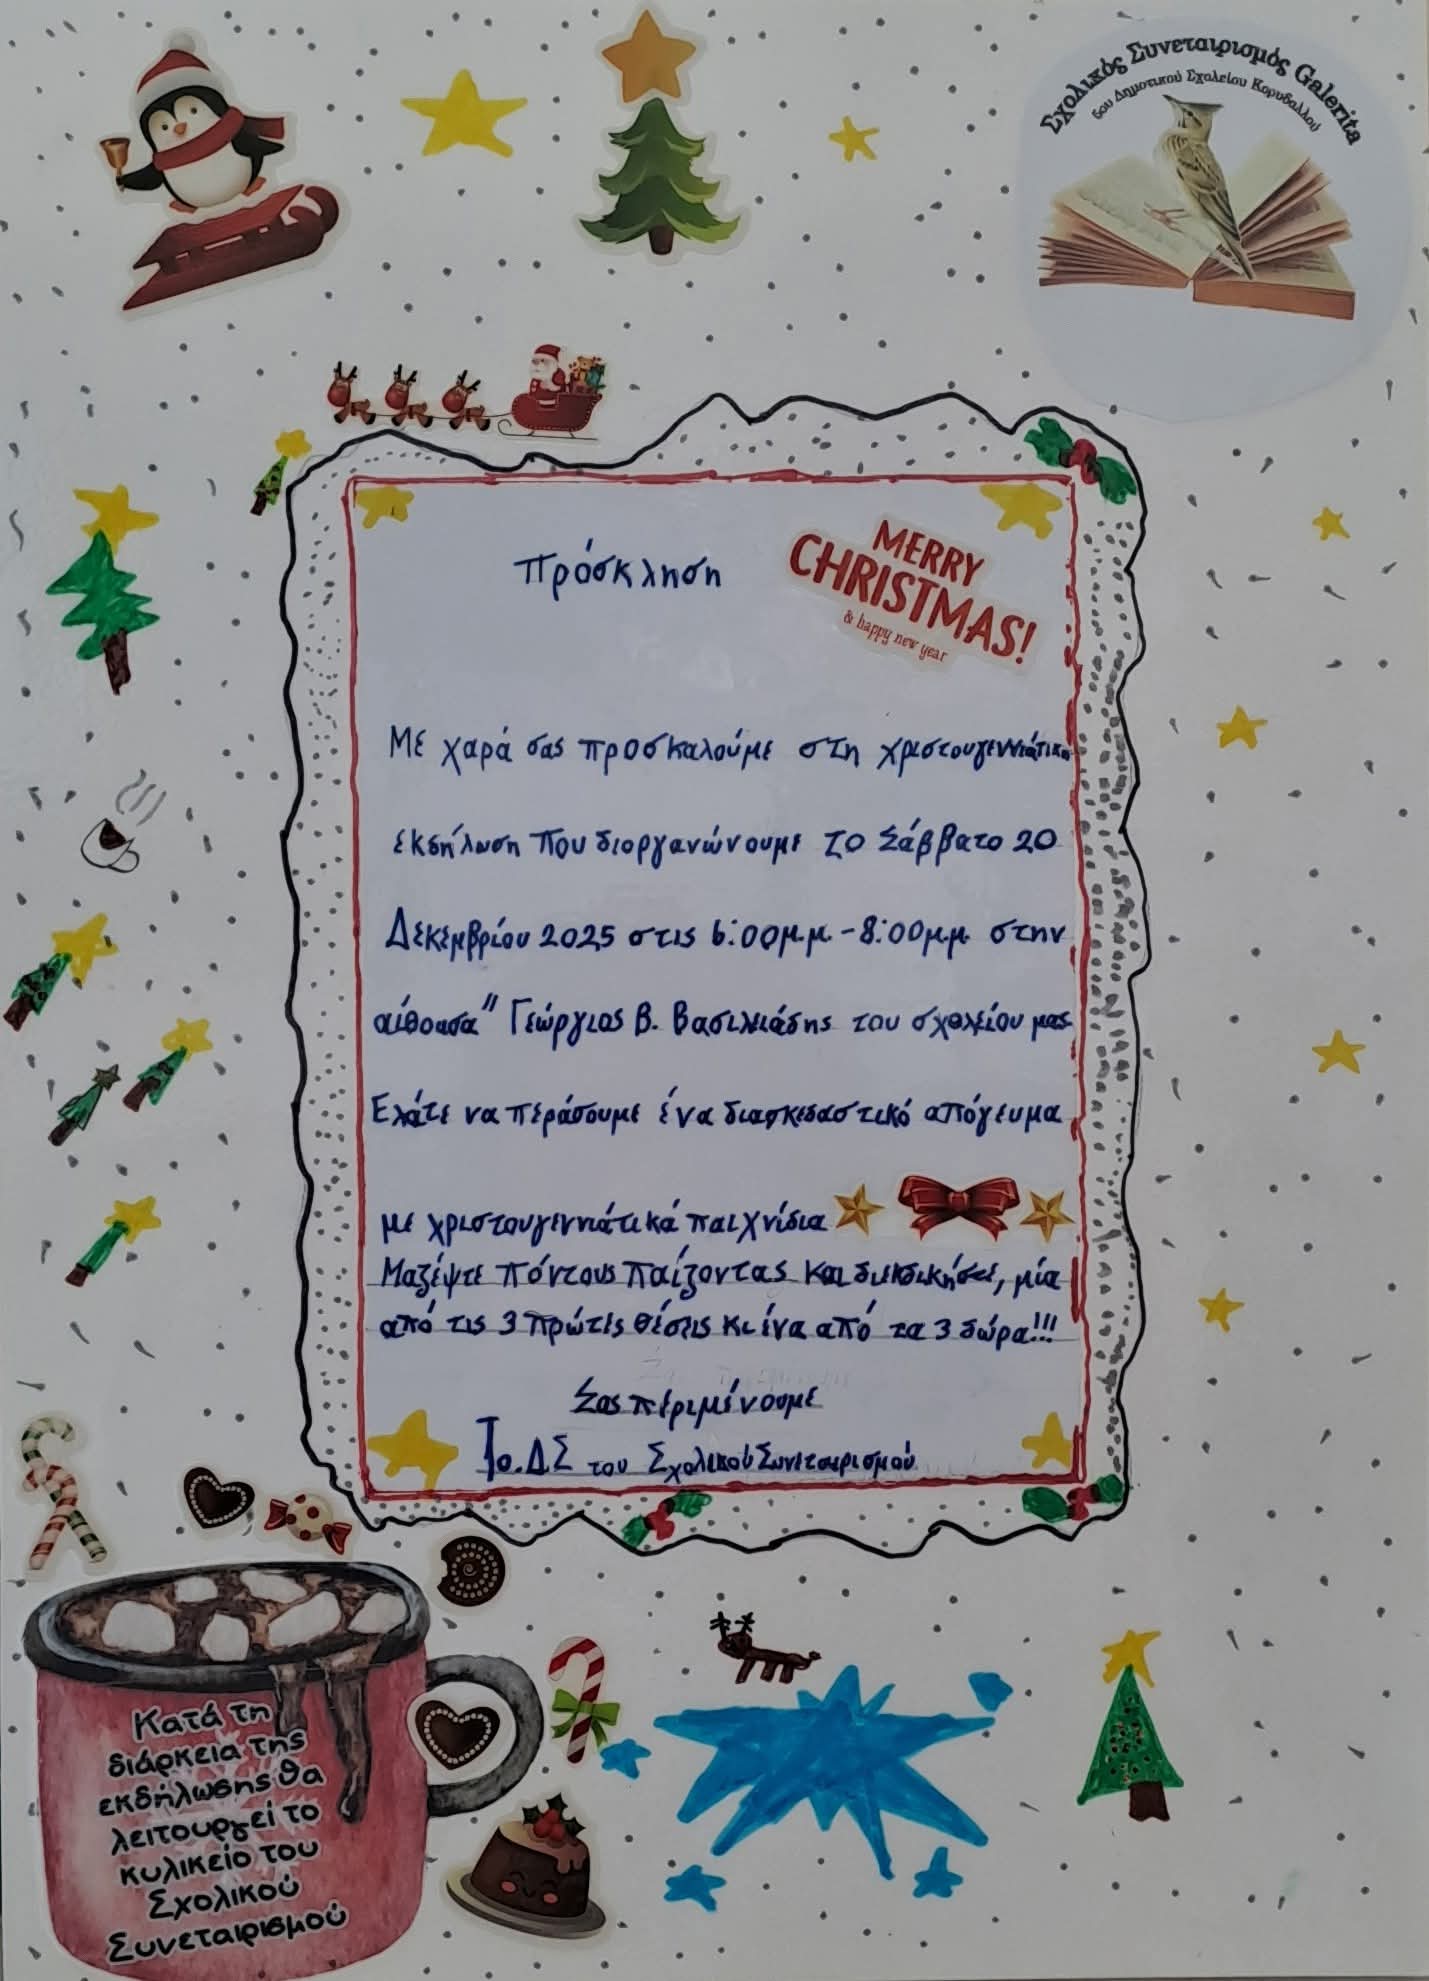 Σχολικός Συνεταιρισμός Galerita
5ου Δημοτικού Σχολείου Κορυδαλλού
Πρόσκληση
MERRY
CHRISTMAS!
& happy new year
Με χαρά σας προσκαλούμε στη χριστουγεννιάτικη
εκδήλωση που διοργανώνουμε το Σάββατο 20
Δεκεμβρίου 2025 στις 6:00μ.μ. - 8:00μ.μ. στην
αίθουσα " Γεώργιος Β. Βασιλειάδης του σχολείου μας
Ελάτε να περάσουμε ένα διασκεδαστικό απόγευμα
με χριστουγεννιάτικά παιχνίδια
Μαζέψτε πόντους παίζοντας και διεκδικήστε, μία
από τις 3 πρώτες θέσεις κι ένα από τα 3 δώρα!!!
Σας περιμένουμε
Το.ΔΣ του Σχολικού Συνεταιρισμού
Κατά τη
διάρκεια της
εκδήλωσης θα
λειτουργεί το
κυλικείο του
Σχολικού
Συνεταιρισμού